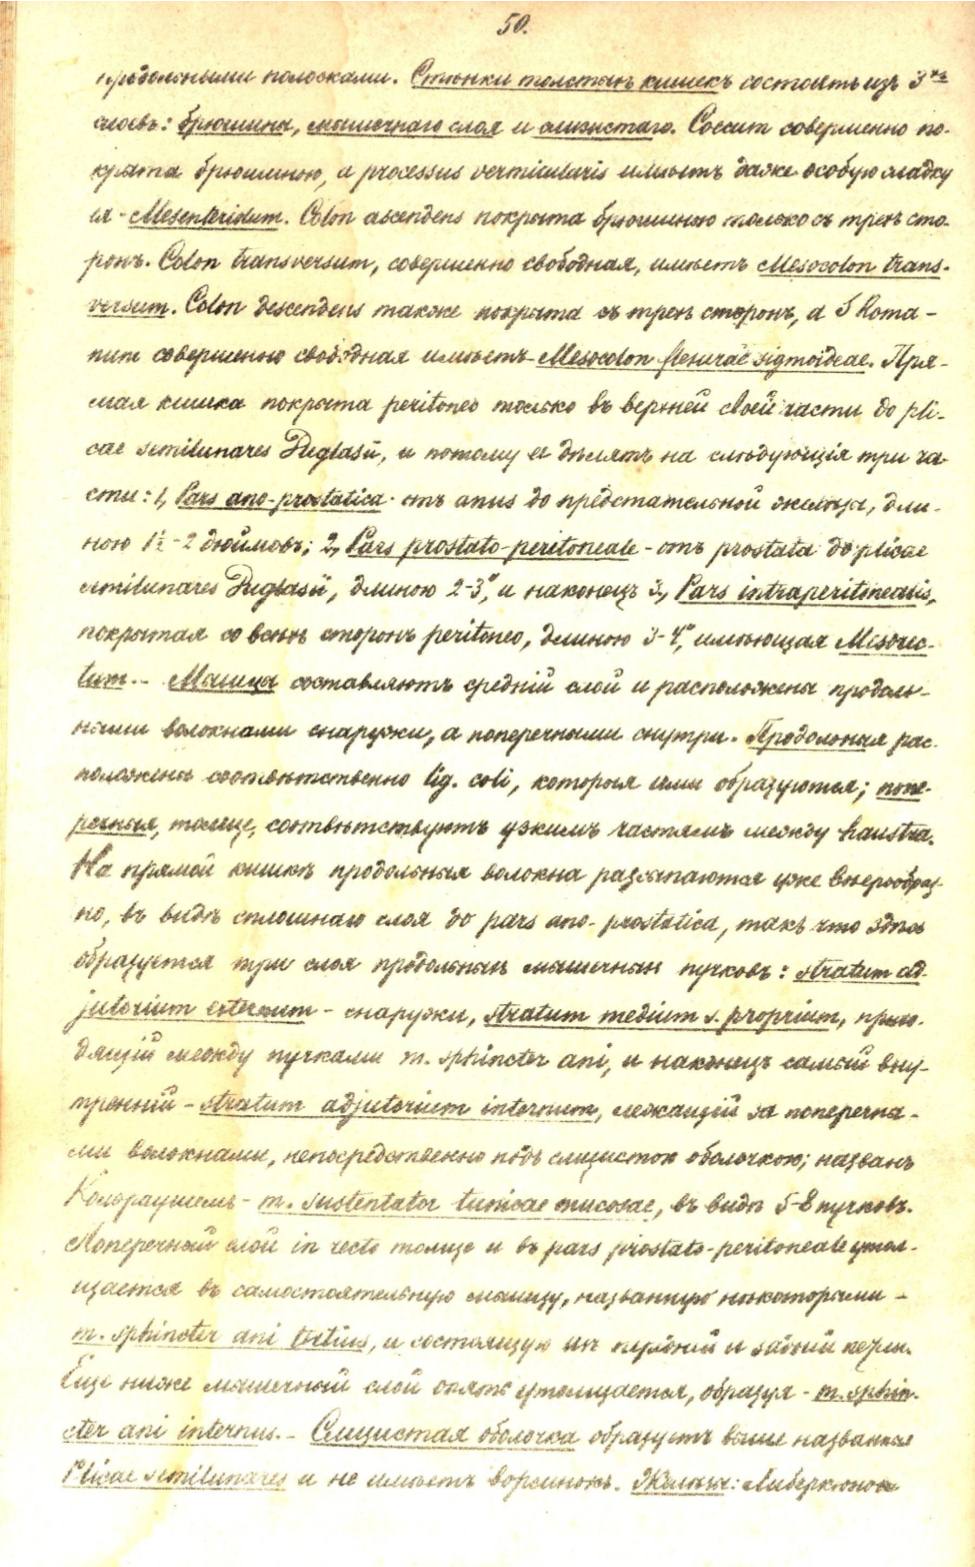 50.
продольными полосками. Стѣнки толстыхъ кишекъ состоятъ изъ 3хъ
слоевъ: брюшины, мышечнаго слоя и слизистаго. Coecum совершенно по-
крыта брюшиною, а processus vermicularis имѣетъ даже особую складку
ея - Mesenteridum. Colon ascendens покрыта брюшиною только съ трехъ сто-
ронъ. Colon transversum, совершенно свободная, имѣетъ Mesocolon trans-
versum. Colon descendens также покрыта съ трехъ сторонъ, а S Roma-
num совершенно свободная имѣетъ Mesocolon flexurae sigmoideae. Пря-
мая кишка покрыта peritoneo только въ верхней своей части до pli-
cae semilunares Duglasii, и потому ее дѣлятъ на слѣдующія три ча-
сти: 1, Pars ano-prostatica - отъ anus до предстательной железы, дли-
ною 1½-2 дюймовъ; 2, Pars prostato-peritoneale - отъ prostata до plicae
semilunares Duglasii, длиною 2-3", и наконецъ 3, Pars intraperitonealis,
покрытая со всѣхъ сторонъ peritoneo, длиною 3-4", имѣющая Mesorec-
tum. - Мышцы составляютъ средній слой и расположены продоль-
ными волокнами снаружи, а поперечными снутри. Продольныя рас-
положены соотвѣтственно lig. coli, которыя ими образуются; попе-
речныя, толще, соотвѣтствуютъ узкимъ частямъ между haustra.
На прямой кишкѣ продольныя волокна разсыпаются уже вѣерообраз-
но, въ видѣ сплошнаго слоя до pars ano-prostatica, такъ что здѣсь
образуется три слоя продольныхъ мышечныхъ пучковъ: stratum ad-
jutorium externum - снаружи, stratum medium s. proprium, прохо-
дящій между пучками m. sphincter ani, и наконецъ самый вну-
тренній - stratum adjutorium internum, лежащій за поперечны-
ми волокнами, непосредственно подъ слизистою оболочкою; названъ
Кольраушемъ - m. sustentator tunicae mucosae, въ видѣ 5-8 пучковъ.
Поперечный слой in recto толще и въ pars prostato-peritoneale утол-
щается въ самостоятельную мышцу, названную нѣкоторыми -
m. sphincter ani tertius, и состоящую изъ передней и задней
Еще ниже мышечный слой опять утолщается, образуя - m. sphin-
cter ani internus. - Слизистая оболочка образуетъ выше названныя
Plicae semilunares и не имѣетъ ворсинокъ. Железы: Либеркюновы